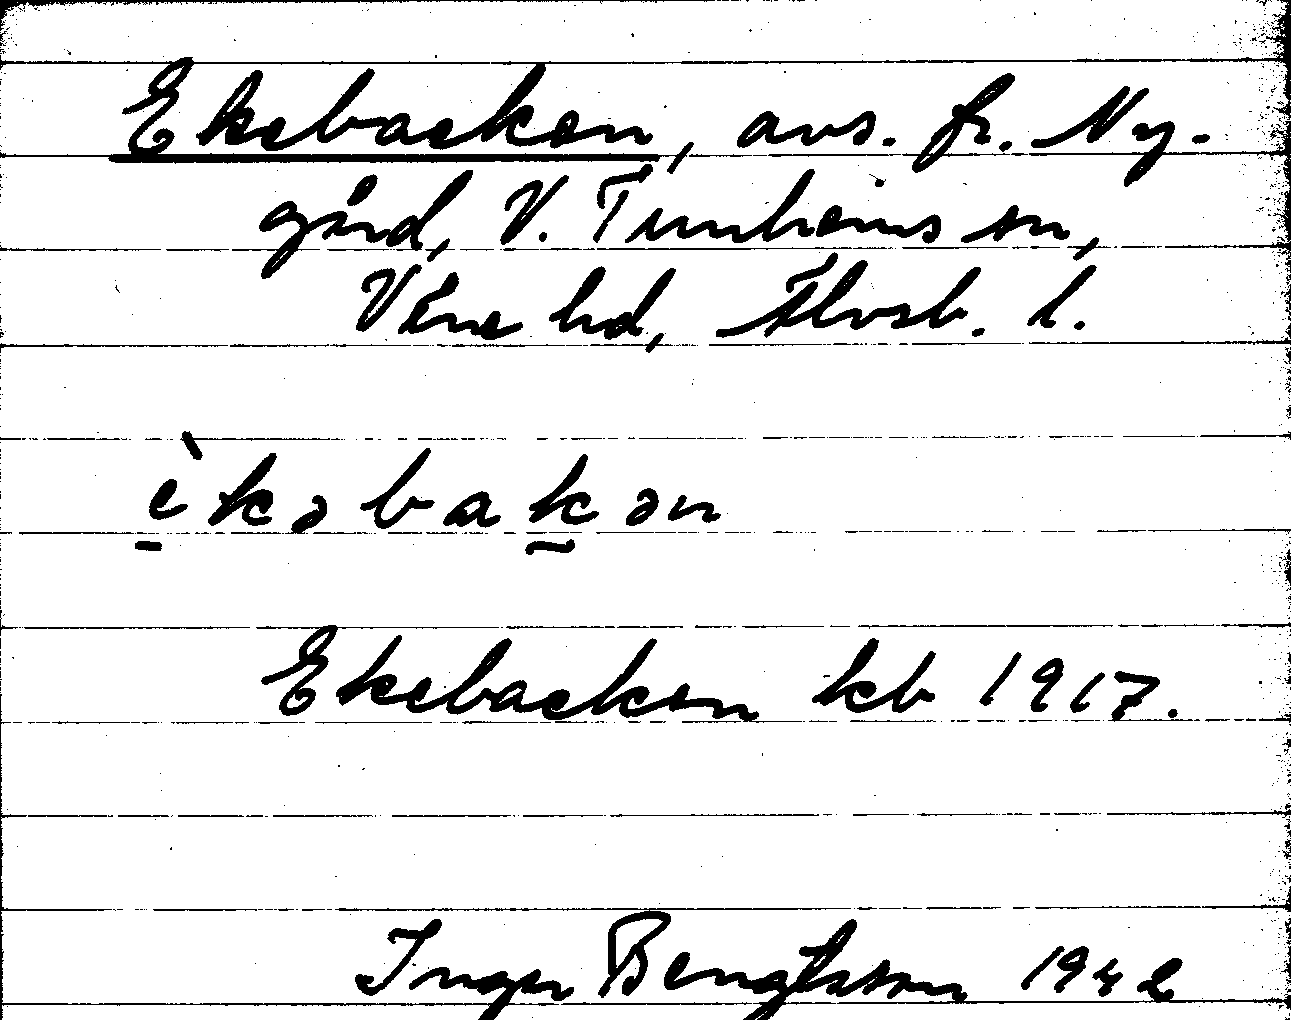 Ekebacken, avs. fr. Ny-
gård, V. Tunhems sn,
Väne hd, Älvsb. l.
èkəbakən
Ekebacken kb 1917.
Inger Bengtsson 1942